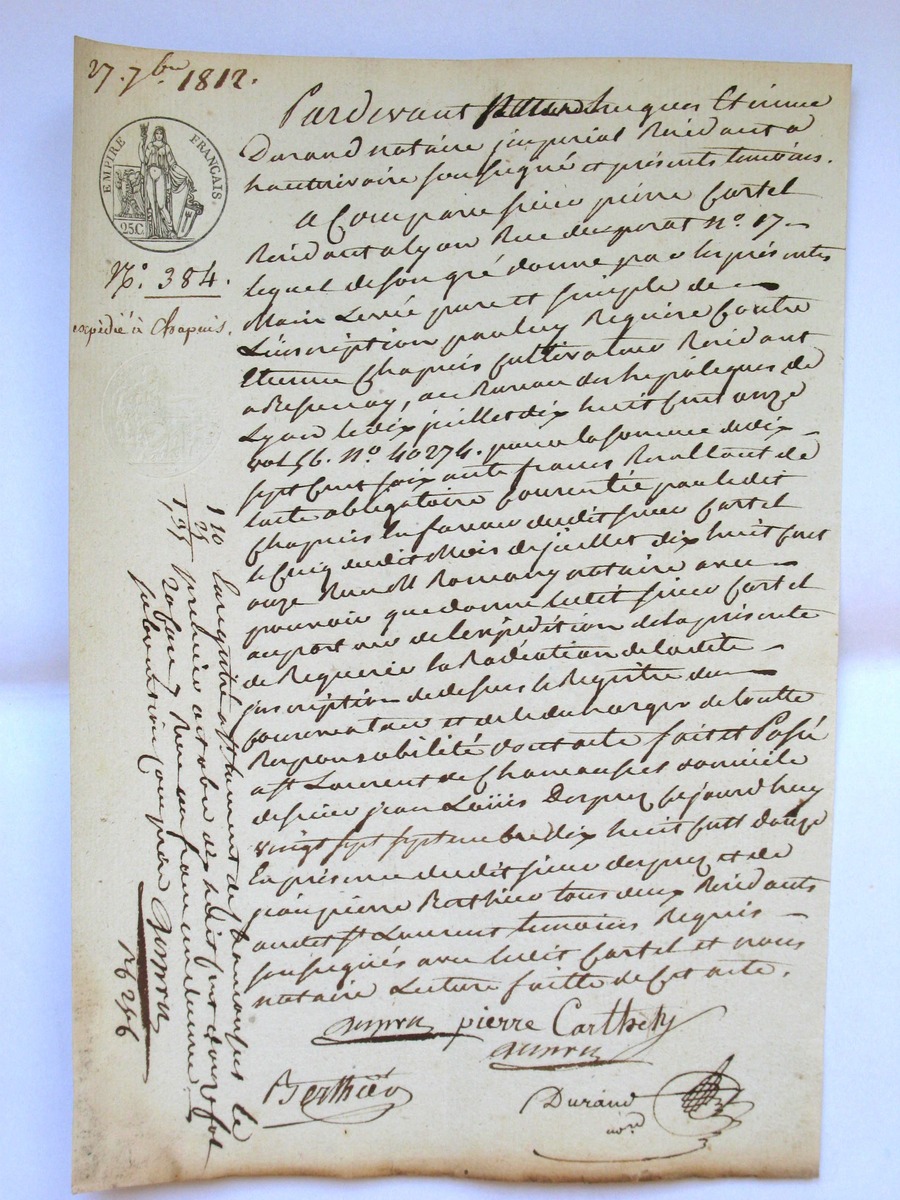 27. 7bre 1812.
EMPIRE FRANÇAIS.
25C.
N.° 384.
expédié à Chapuis.
Pardevant Jacques Etienne
Durand notaire jmperial Residant a
hauterivoire sousigné et présents temoins.
a Comparu sieur pierre Cartel
Residant a lyon Rue N.° 17
lequel de son gré donne par les présentes
Main Levée pure et simple de
L'inscription par luy Requise Contre
Etienne Chapuis Cultivateur Residant
a , au Bureau des hypoteques de
Lyon le dix juillet dix huit cent onze
vol 56. N.° 40274. pour la somme de dix
sept cent soixante francs Resultant de
lacte obligatoire Consentie par ledit
Chapuis En faveur dudit sieur Cartel
le Cinq dudit Mois de juillet dix huit cent
onze Recu Me Romany notaire avec
pouvoir que donne ledit sieur Cartel
au porteur de l'expédition de la présente
de Requerir la Radiation de ladite
jnscription de dessus le Registre du
Conservateur et de le décharger de toutte
Responsabilité dont acte fait et Passé
a st Laurent de Chamousset domicile
de sieur jean Louis Dupuy Cejourdhuy
vingt sept septembre dix huit cent douze
En présence dudit sieur dupuy et de
jean pierre Berthier tous deux Residants
audit st Laurent temoins Requis
sousignés avec ledit Cartel et nous
notaire Lecture faitte de Cet acte.
pierre Carthely
Berthier
Durand
nore
Enregistré a st Laurent de Chamousset le
premier octobre dix huit cent douze fol
Reçu un franc
1 10
25